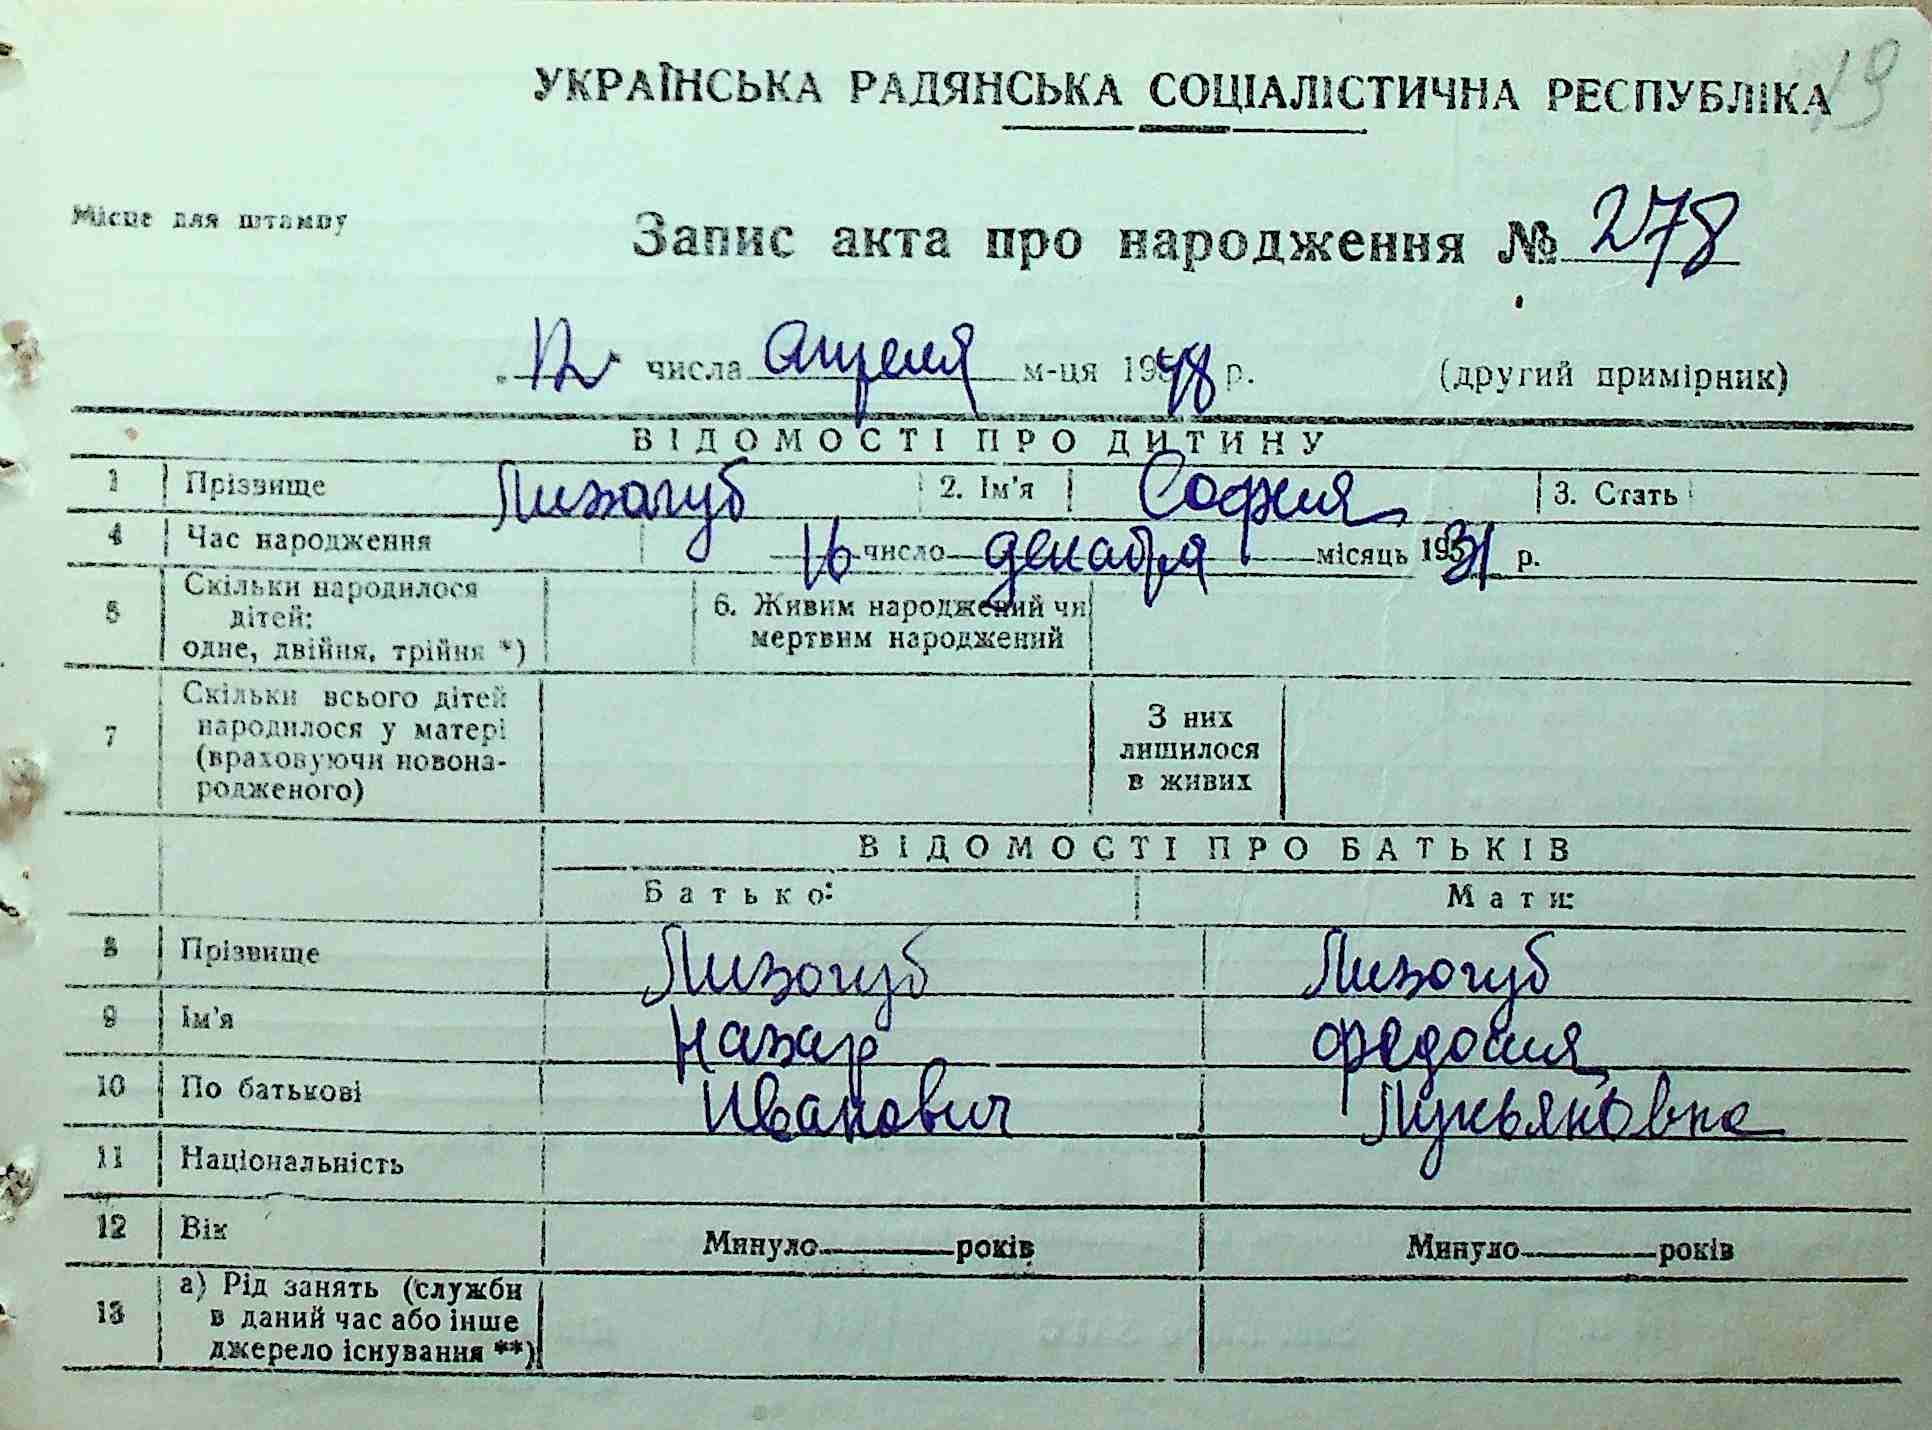 19
УКРАЇНСЬКА РАДЯНСЬКА СОЦІАЛІСТИЧНА РЕСПУБЛІКА
Місце для штампу
Запис акта про народження № 278
12 числа апреля м-ця 1948 р. (другий примірник)
ВІДОМОСТІ ПРО ДИТИНУ
1 Прізвище Лизогуб 2. Ім'я София 3. Стать
4 Час народження 16 число декабря місяць 1931 р.
5 Скільки народилося дітей: одне, двійня, трійня *) 6. Живим народжений чи мертвим народжений
7 Скільки всього дітей народилося у матері (враховуючи новонародженого) З них лишилося в живих
ВІДОМОСТІ ПРО БАТЬКІВ
Батько: Мати:
8 Прізвище Лизогуб Лизогуб
9 Ім'я Назар Федосия
10 По батькові Иванович Лукьяновна
11 Національність
12 Вік Минуло років Минуло років
13 а) Рід занять (служби в даний час або інше джерело існування **)